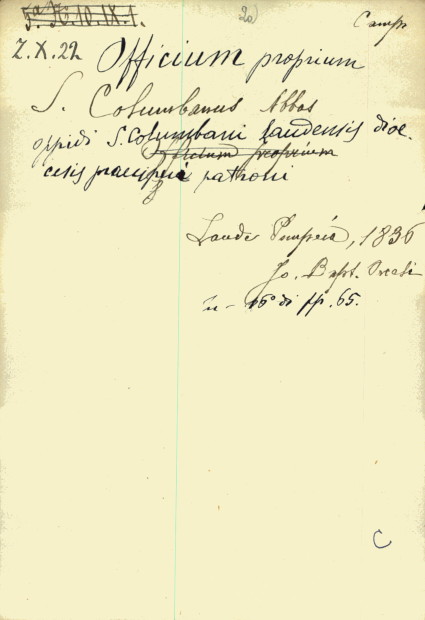 5ª K.10.IX.1.
20
Camp
Z.X.22
Officium proprium
S. Columbanus Abbas
oppidi S. Columbani laudensis dioe-
Officium proprium
cesis praecipui patroni
Laude Pompeia, 1836
Jo. Bapt. Orcesi
in-16° di pp. 65.
C